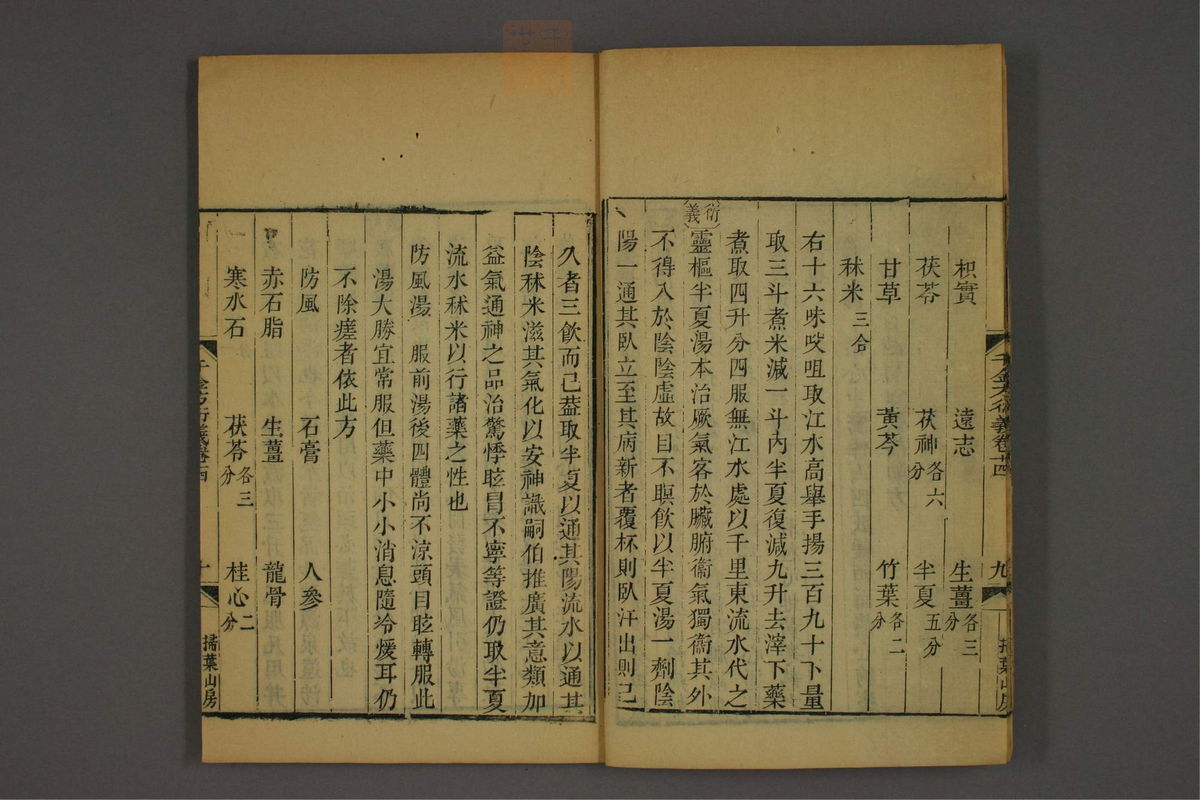 枳實 遠志 生薑各三分
茯苓 茯神各六分 半夏五分
甘草 黃芩 竹葉各二分
秫米三合
右十六味㕮咀取江水高舉手揚三百九十下量
取三斗煮米減一斗內半夏復減九升去滓下藥
煮取四升分四服無江水處以千里東流水代之
衍義
靈樞半夏湯本治厥氣客於臟腑衞氣獨衞其外
不得入於陰陰虛故目不瞑飲以半夏湯一劑陰
陽一通其臥立至其病新者覆杯則臥汗出則已
千金方衍義卷十四 九 掃葉山房
久者三飲而已蓋取半夏以通其陽流水以通其
陰秫米滋其氣化以安神識嗣伯推廣其意類加
益氣通神之品治驚悸眩冒不寧等證仍取半夏
流水秫米以行諸藥之性也
防風湯 服前湯後四體尚不涼頭目眩轉服此
湯大勝宜常服但藥中小小消息隨冷煖耳仍
不除瘥者依此方
防風 石膏 人參
赤石脂 生薑 龍骨
寒水石 茯苓各三分 桂心二分
千金方衍義卷十四 十 掃葉山房